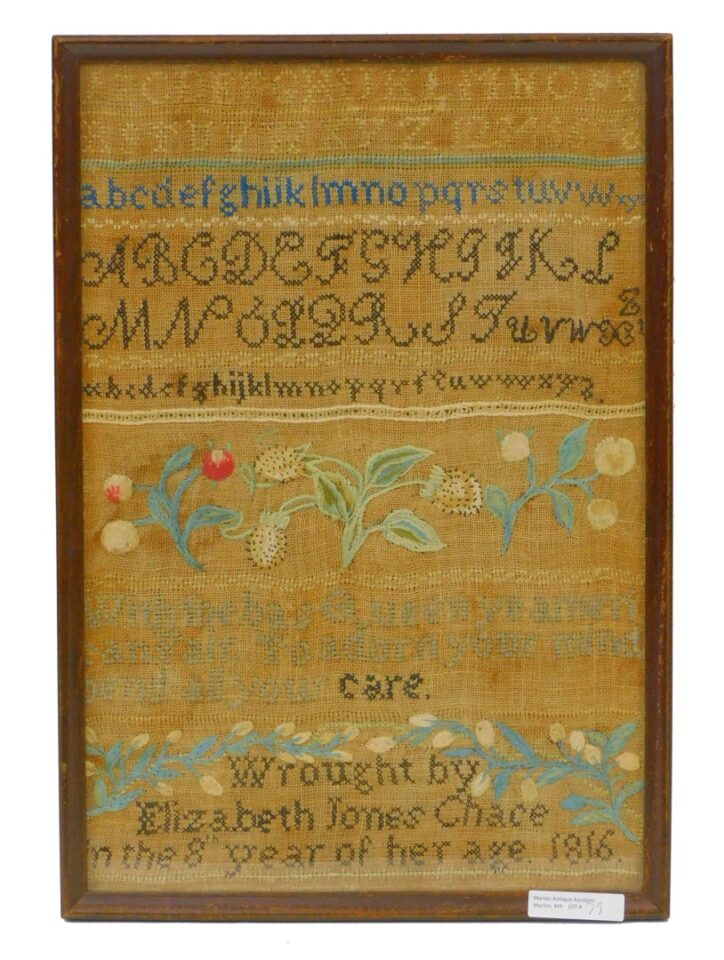 K L M N O P
X Y Z
abcdefghijklmnopqrstuvwxy
ABCDEFGHIJKL
MNOPQRSTUVWXYZ
abcdefghijklmnopqrſstuvwxyz.
Queen ye ameri
can fair To adorn your mind
bend all your care.
Wrought by
Elizabeth Jones Chace
in the 8th year of her age. 1816.
Marion Antique Auctions
Marion, MA LOT #